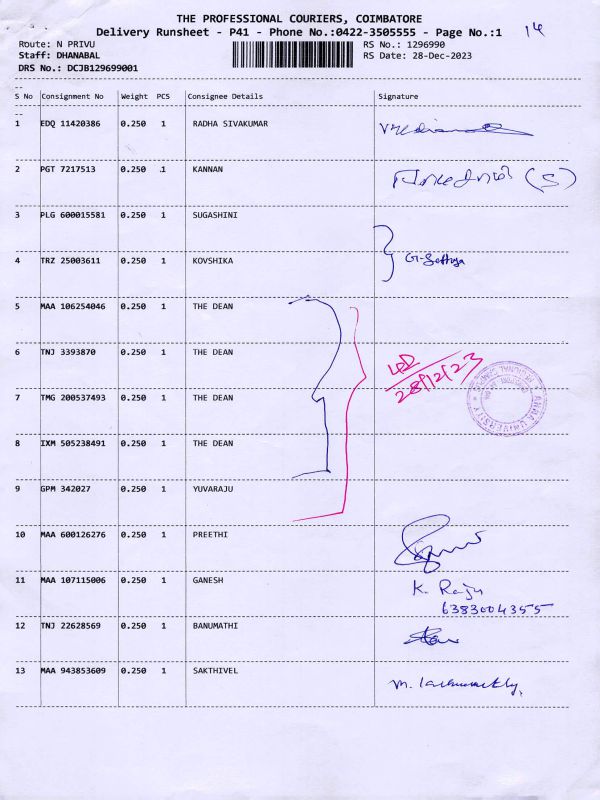 THE PROFESSIONAL COURIERS, COIMBATORE
Delivery Runsheet - P41 - Phone No.:0422-3505555 - Page No.:1 14
Route: N PRIVU RS No.: 1296990
Staff: DHANABAL RS Date: 28-Dec-2023
DRS No.: DCJB129699001
--
S No Consignment No Weight PCS Consignee Details Signature
--
1 EDQ 11420386 0.250 1 RADHA SIVAKUMAR
2 PGT 7217513 0.250 1 KANNAN (S)
3 PLG 600015581 0.250 1 SUGASHINI
4 TRZ 25003611 0.250 1 KOVSHIKA
5 MAA 106254046 0.250 1 THE DEAN
6 TNJ 3393870 0.250 1 THE DEAN
28/12/23
7 TMG 200537493 0.250 1 THE DEAN
ANNA UNIVERSITY
8 IXM 505238491 0.250 1 THE DEAN
9 GPM 342027 0.250 1 YUVARAJU
10 MAA 600126276 0.250 1 PREETHI
11 MAA 107115006 0.250 1 GANESH K. Raju
6383004355
12 TNJ 22628569 0.250 1 BANUMATHI
13 MAA 943853609 0.250 1 SAKTHIVEL